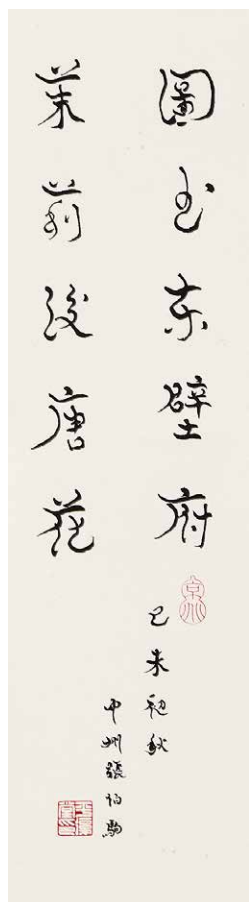 圖書東壁府
茉莉後唐花
己未初秋
中州張伯駒